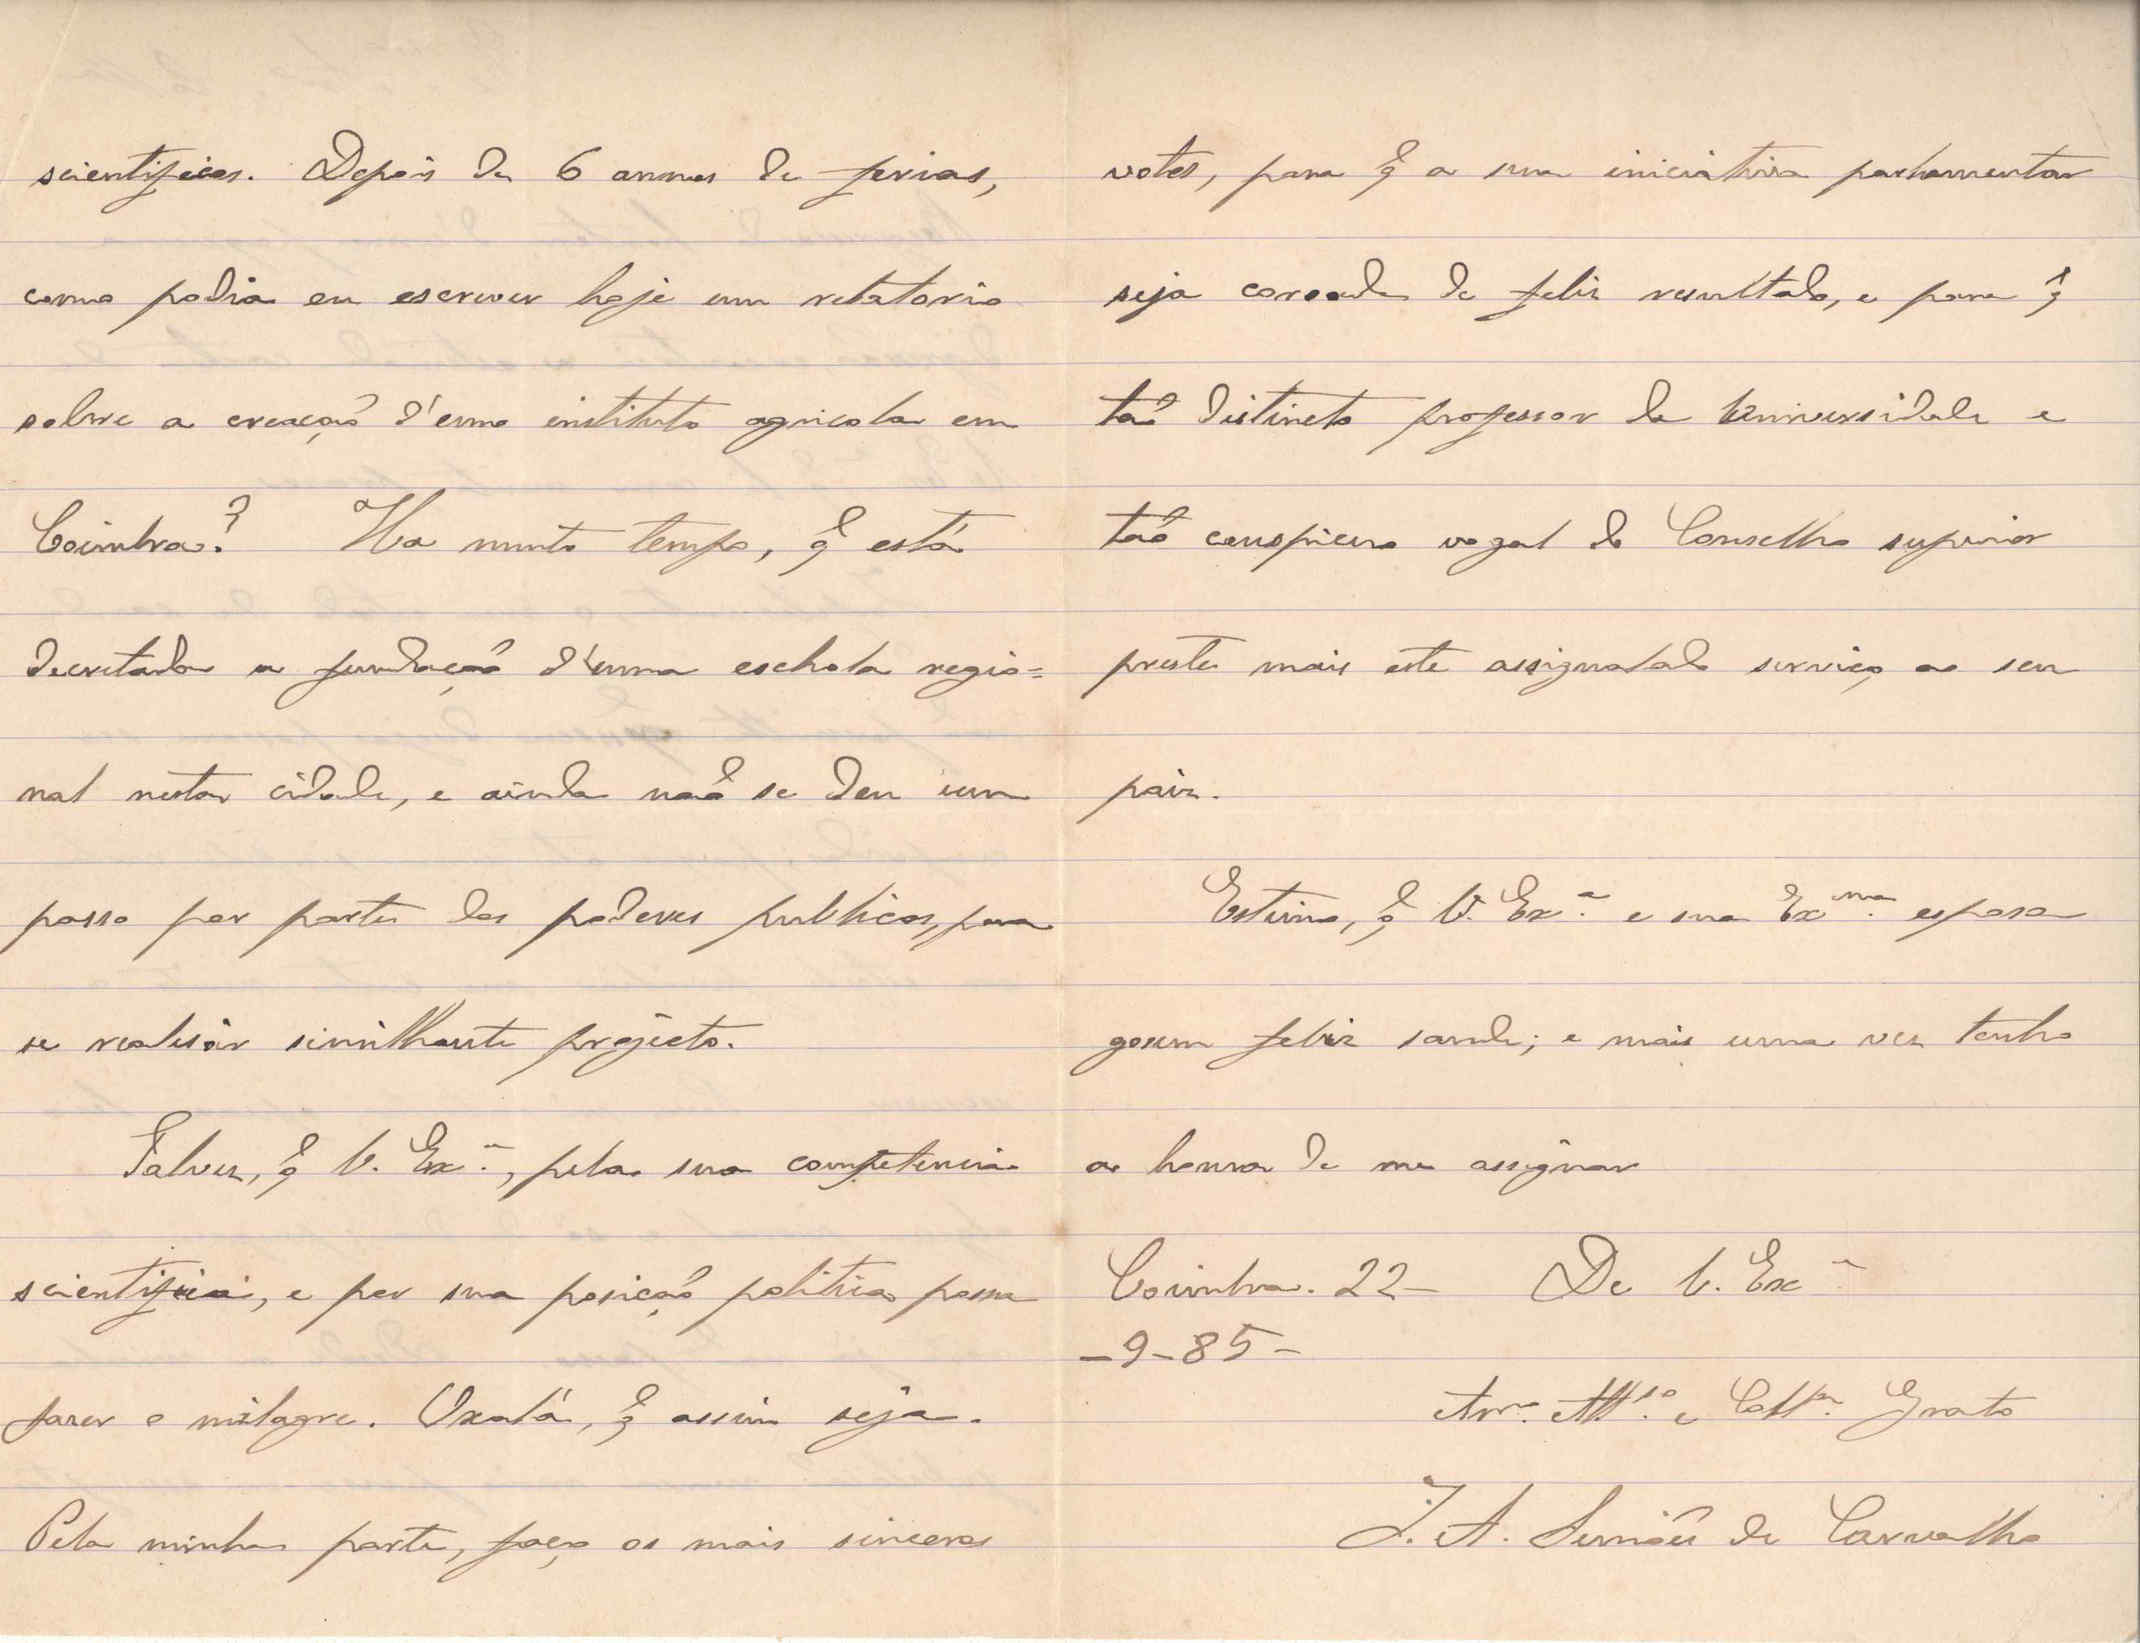 scientificos. Depois de 6 annos de ferias,
como podia eu escrever hoje um relatorio
sobre a creação d'um instituto agricola em
Coimbra? Ha muito tempo, q̃ está
decretada a fundação d'uma eschola regio=
nal nesta cidade, e ainda não se deu um
passo por parte dos poderes publicos, para
se realisar similhante projecto.
Talvez, q̃ V. Ex.ª, pela sua competencia
scientifica, e por sua posição politica possa
fazer o milagre. Oxalá, q̃ assim seja.
Pela minha parte, faço os mais sinceros
votos, para q̃ a sua iniciativa parlamentar
seja coroada de feliz resultado, e para q̃
tão distincto professor da Universidade e
tão conspicuo vogal do Conselho superior
preste mais este assignalado serviço ao seu
paiz.
Estimo, q̃ V. Ex.ª e sua Ex.ma esposa
gosem feliz saude; e mais uma vez tenho
a honra de me assignar
Coimbra. 22– De V. Ex.ª
–9–85–
Am.º Att.º e Coll.ª Grato
J. A. Simões de Carvalho